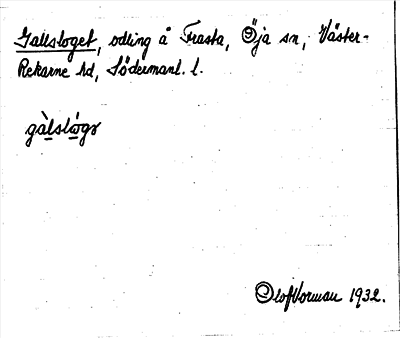 Gallsloget, odling å Frasta, Öja sn, Väster-
Rekarne hd, Södermanl. l.
gàlslógə
Olof Vorman 1932.